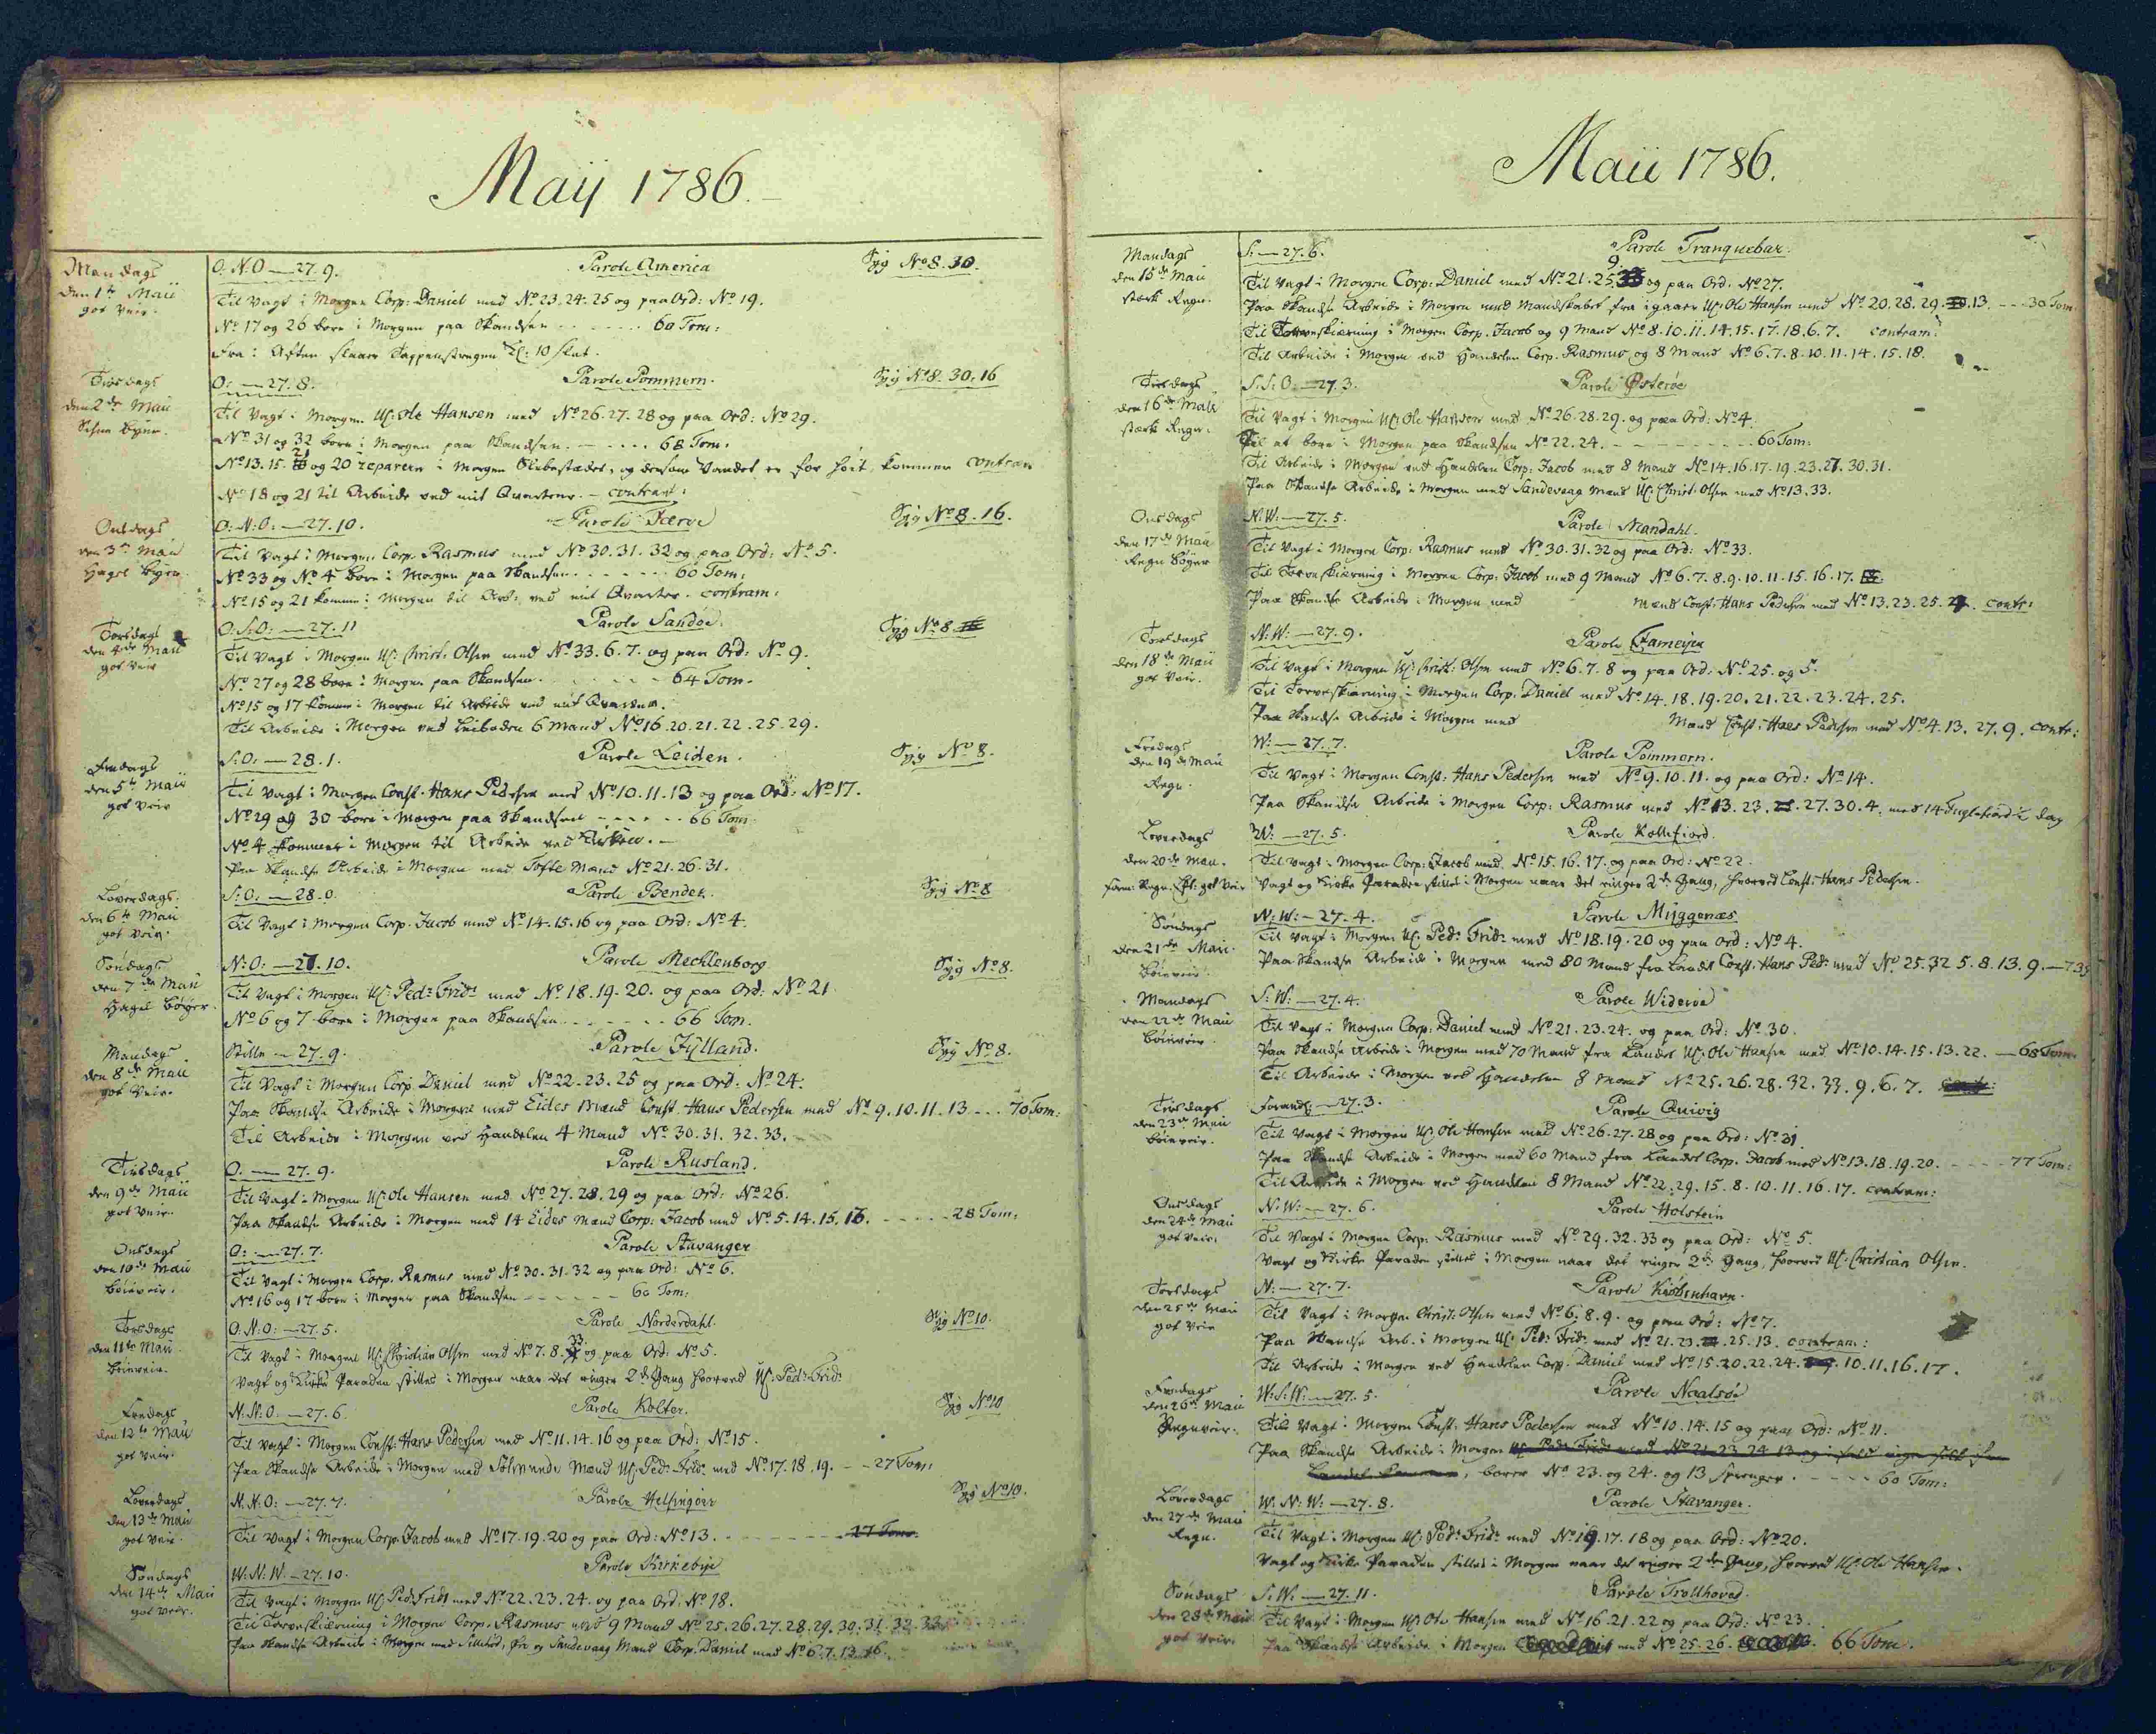 Maij 1786.
Mandags
den 1te Maii
got Veir.
O. N. O — 27. 9. Parole America Syg No 8. 30.
Til Vagt i Morgen Corp: Daniel med No 23. 24. 25 og paa Ord: No 19.
No 17 og 26 bore i Morgen paa Skandsen . . . . . . 60 Tom:
Fra i Aften slaaes Tappenstregen Kl: 10 slet.
Tirsdags
den 2de Maii
O: — 27. 8. Parole Pommern. Syg No 8. 30. 16
Til Vagt i Morgen Uf: Ole Hansen med No 26. 27. 28 og paa Ord: No 29.
No 31 og 32 bore i Morgen paa Skandsen. — . . . . 68 Tom:
No 13. 15. 21 og 20 reparere i Morgen og dersom Vandet er for höit, kommer contram
No 18 og 21 til Arbeide ved mit Qvarteer. — contram:
Onsdags
den 3die Maii
Hagel Byger.
O: N: O: — 27. 10. Parole Færøe Syg No 8. 16.
Til Vagt i Morgen Corp. Rasmus med No 30. 31. 32 og paa Ord: No 5.
No 33 og No 4 bore i Morgen paa Skandsen . . . . . . 60 Tom:
No 15 og 21 komme i Morgen til Arb: ved mit Qvarter. contram:
Torsdags
den 4de Maii
got Veir
O: S: O: — 27. 11 Parole Sandöe. Syg No 8
Til Vagt i Morgen Uf: Christ: Olsen med No 33. 6. 7. og paa Ord: No 9.
No 27 og 28 bore i Morgen paa Skandsen. . . . . . 64 Tom.
No 15 og 17 komme i Morgen til Arbeide ved mit Qvarteer.
Til Arbeide i Morgen ved 6 Mand No 16. 20. 21. 22. 25. 29.
Fredags
den 5te Maii
got Veir
S: O: — 28. 1. Parole Leiden. Syg No 8.
Til Vagt i Morgen Const. Hans Pedersen med No 10. 11. 13 og paa Ord: No 17.
No 29 og 30 bore i Morgen paa Skandsen — . . . . 66 Tom
No 4 kommer i Morgen til Arbeide ved Kirken. —
Paa Skandse Arbeide i Morgen med Tofte Mænd No 21. 26. 31.
Löverdags.
den 6te Maii
got Veir.
S: O: — 28. 0. Parole Bender. Syg No 8
Til Vagt i Morgen Corp. Jacob med No 14. 15. 16 og paa Ord: No 4.
Söndags
den 7de Maii
Hagel Böyer.
N: O: — 27. 10. Parole Mechlenborg Syg No 8.
Til Vagt i Morgen Uf: Ped: Frid: med No 18. 19. 20. og paa Ord: No 21
No 6 og 7 bore i Morgen paa Skandsen . . . . . . . 66 Tom.
Mandags
den 8de Maii
got Veir.
Stille — 27. 9. Parole Jylland. Syg No 8.
Til Vagt i Morgen Corp. Daniel med No 22. 23. 25 og paa Ord: No 24.
Paa Skandse Arbeide i Morgen med Eides Mænd Const. Hans Pedersen med No 9. 10. 11. 13 . . . 70 Tom:
Til Arbeide i Morgen ved Handelen 4 Mand No 30. 31. 32. 33.
Tirsdags
den 9de Maii
got Veir.
O. — 27. 9. Parole Rusland.
Til Vagt i Morgen Uf: Ole Hansen med No 27. 28. 29 og paa Ord: No 26.
Paa Skandse Arbeide i Morgen med 14 Eides Mænd Corp: Jacob med No 5. 14. 15. 16. — . . . . 28 Tom:
Onsdags
den 10de Maii
Böieveir.
O: — 27. 7. Parole Stavanger
Til Vagt i Morgen Corp. Rasmus med No 30. 31. 32 og paa Ord: No 6.
No 16 og 17 bore i Morgen paa Skandsen — — — — — 60 Tom:
Torsdags
den 11te Maii
Böieveir.
O. N: O: — 27. 5. Parole Norderdahl. Syg No 10.
Til Vagt i Morgen Uf: Christian Olsen med No 7. 8. 33 og paa Ord: No 5.
Vagt og Kirke Paraden stilles i Morgen naar det ringer 2de Gang hvorved Uf: Ped: Frid:
Fredags
den 12te Maii
got Veir.
N. N: O. — 27. 6. Parole Kolter. Syg No 10
Til Vagt i Morgen Const: Hans Pedersen med No 11. 14. 16 og paa Ord: No 15.
Paa Skandse Arbeide i Morgen med Sölmunde Mænd Uf: Ped: Frid: med No 17. 18. 19. — — 27 Tom:
Löverdags
den 13de Maii
got Veir.
N. N: O: — 27. 7. Parole Helsingöer Syg No 10.
Til Vagt i Morgen Corp. Jacob med No 17. 19. 20 og paa Ord: No 13. — . . . . . . 27 Tom.
Söndags
den 14de Maii
got Veir.
W: N: W: — 27. 10. Parole Kirkebye
Til Vagt i Morgen Uf: Ped: Frid: med No 22. 23. 24. og paa Ord: No 18.
Til Torveskiærning i Morgen Corp. Rasmus med 9 Mand No 25. 26. 27. 28. 29. 30. 31. 32. 33.
Paa Skandse Arbeide i Morgen med og Sandevaag Mænd Corp. Daniel med No 6. 7. 13. 16.
Maii 1786.
Mandags
den 15de Maii
stærk Regn.
S. — 27. 6. Parole Tranquebar.
Til Vagt i Morgen Corp: Daniel med No 21. 25. 9. og paa Ord. No 27.
Paa Skandse Arbeide i Morgen med Mandskabet fra igaar Uf: Ole Hansen med No 20. 28. 29. 13. — . . 30 Tom
Til Torveskiærning i Morgen Corp. Jacob og 9 Mand No 8. 10. 11. 14. 15. 17. 18. 6. 7. contram:
Til Arbeide i Morgen ved Handelen Corp. Rasmus og 8 Mand No 6. 7. 8. 10. 11. 14. 15. 18.
Tirsdags
den 16de Maii
stærk Regn.
S: S: O: — 27. 3. Parole Østeröe
Til Vagt i Morgen Uf: Ole Hansen med No 26. 28. 29. og paa Ord: No 4.
Til at bore i Morgen paa Skandsen No 22. 24. — — — — — 60 Tom:
Til Arbeide i Morgen ved Handelen Corp: Jacob med 8 Mand No 14. 16. 17. 19. 23. 27. 30. 31.
Paa Skandse Arbeide i Morgen med Sandevaag Mænd Uf: Christ: Olsen med No 13. 33.
Onsdags
den 17de Maii
Regn Böger
N: W: — 27. 5. Parole Mandahl.
Til Vagt i Morgen Corp: Rasmus med No 30. 31. 32 og paa Ord: No 33.
Til Torveskiærning i Morgen Corp: Jacob med 9 Mand No 6. 7. 8. 9. 10. 11. 15. 16. 17.
Paa Skandse Arbeide i Morgen med Mænd Const: Hans Pedersen med No 13. 23. 25. contr:
Torsdags
den 18de Maii
got Veir.
N: W: — 27. 9. Parole Fameijen
Til Vagt i Morgen Uf: Christ: Olsen med No 6. 7. 8 og paa Ord: No 25. og 5.
Til Torveskiærning i Morgen Corp. Daniel med No 14. 18. 19. 20. 21. 22. 23. 24. 25.
Paa Skandse Arbeide i Morgen med Mænd Const: Hans Pedersen med No 4. 13. 27. 9. contr:
Fredags
den 19de Maii
Regn.
W: — 27. 7. Parole Pommern.
Til Vagt i Morgen Const: Hans Pedersen med No 9. 10. 11. og paa Ord: No 14.
Paa Skandse Arbeide i Morgen Corp: Rasmus med No 13. 23. 27. 30. 4. med 14 Fuglefiord i dag
Löverdags
den 20de Maii.
form: Regn. Eft: got Veir
W: — 27. 5. Parole Kollefiord.
Til Vagt i Morgen Corp: Jacob med No 15. 16. 17. og paa Ord: No 22.
Vagt og Kirke Paraden stilles i Morgen naar det ringer 2de Gang, hvorved Const: Hans Pedersen.
Söndags
den 21de Maii.
Böieveir.
N: W: — 27. 4. Parole Myggenæs
Til Vagt i Morgen Uf: Ped: Frid: med No 18. 19. 20 og paa Ord: No 4.
Paa Skandse Arbeide i Morgen med 80 Mand fra Landet Const: Hans Ped: med No 25. 32. 5. 8. 13. 9. —
Mandags
den 22de Maii
Böieveir.
S: W: — 27. 4. Parole Wideröe
Til Vagt i Morgen Corp: Daniel med No 21. 23. 24. og paa Ord: No 30.
Paa Skandse Arbeide i Morgen med 70 Mand fra Landet Uf: Ole Hansen med No 10. 14. 15. 13. 22. — 68 Tom:
Til Arbeide i Morgen ved Handelen 8 Mand No 25. 26. 28. 32. 33. 9. 6. 7.
Tirsdags
den 23de Maii
Böieveir.
Forandl: — 27. 3. Parole Quivig
Til Vagt i Morgen Uf: Ole Hansen med No 26. 27. 28 og paa Ord: No 31
Paa Skandse Arbeide i Morgen med 60 Mand fra Landet Corp. Jacob med No 13. 18. 19. 20. — . . . 77 Tom:
Til Arbeide i Morgen ved Handelen 8 Mand No 22. 29. 15. 8. 10. 11. 16. 17. contram:
Onsdags
den 24de Maii
got Veir.
N: W: — 27. 6. Parole Holstein
Til Vagt i Morgen Corp. Rasmus med No 29. 32. 33 og paa Ord: No 5.
Vagt og Kirke Paraden stilles i Morgen naar det ringer 2de Gang, hvorved Uf: Christian Olsen.
Torsdags
den 25de Maii
got Veir
N: — 27. 7. Parole Kiöbenhavn.
Til Vagt i Morgen Christ: Olsen med No 6. 8. 9. og paa Ord: No 7.
Paa Skandse Arb. i Morgen Uf: Ped: Frid: med No 21. 23. 25. 13. contram:
Til Arbeide i Morgen ved Handelen Corp. Daniel med No 15. 20. 22. 24. 10. 11. 16. 17.
Fredags
den 26de Maii
Regnveir.
W: S: W: — 27. 5. Parole Naalsöe
Til Vagt i Morgen Const: Hans Pedersen med No 10. 14. 15 og paa Ord: No 11.
Paa Skandse Arbeide i Morgen Uf: Ped: Frid: med No 21 23 24 13 og
, borer No 23. og 24. og 13 sprenger. — . . . 60 Tom:
Löverdags
den 27de Maii
Regn.
W. N: W: — 27. 8. Parole Stavanger.
Til Vagt i Morgen Uf: Ped: Frid: med No 19. 17. 18 og paa Ord: No 20.
Vagt og Kirke Paraden stilles i Morgen naar det ringer 2de Gang, hvorved Uf: Ole Hansen.
Söndags
den 28de Maii
got Veir.
S: W: — 27. 11. Parole Trollhoved.
Til Vagt i Morgen Uf: Ole Hansen med No 16. 21. 22 og paa Ord: No 23.
Paa Skandse Arbeide i Morgen med No 25. 26. 66 Tom.